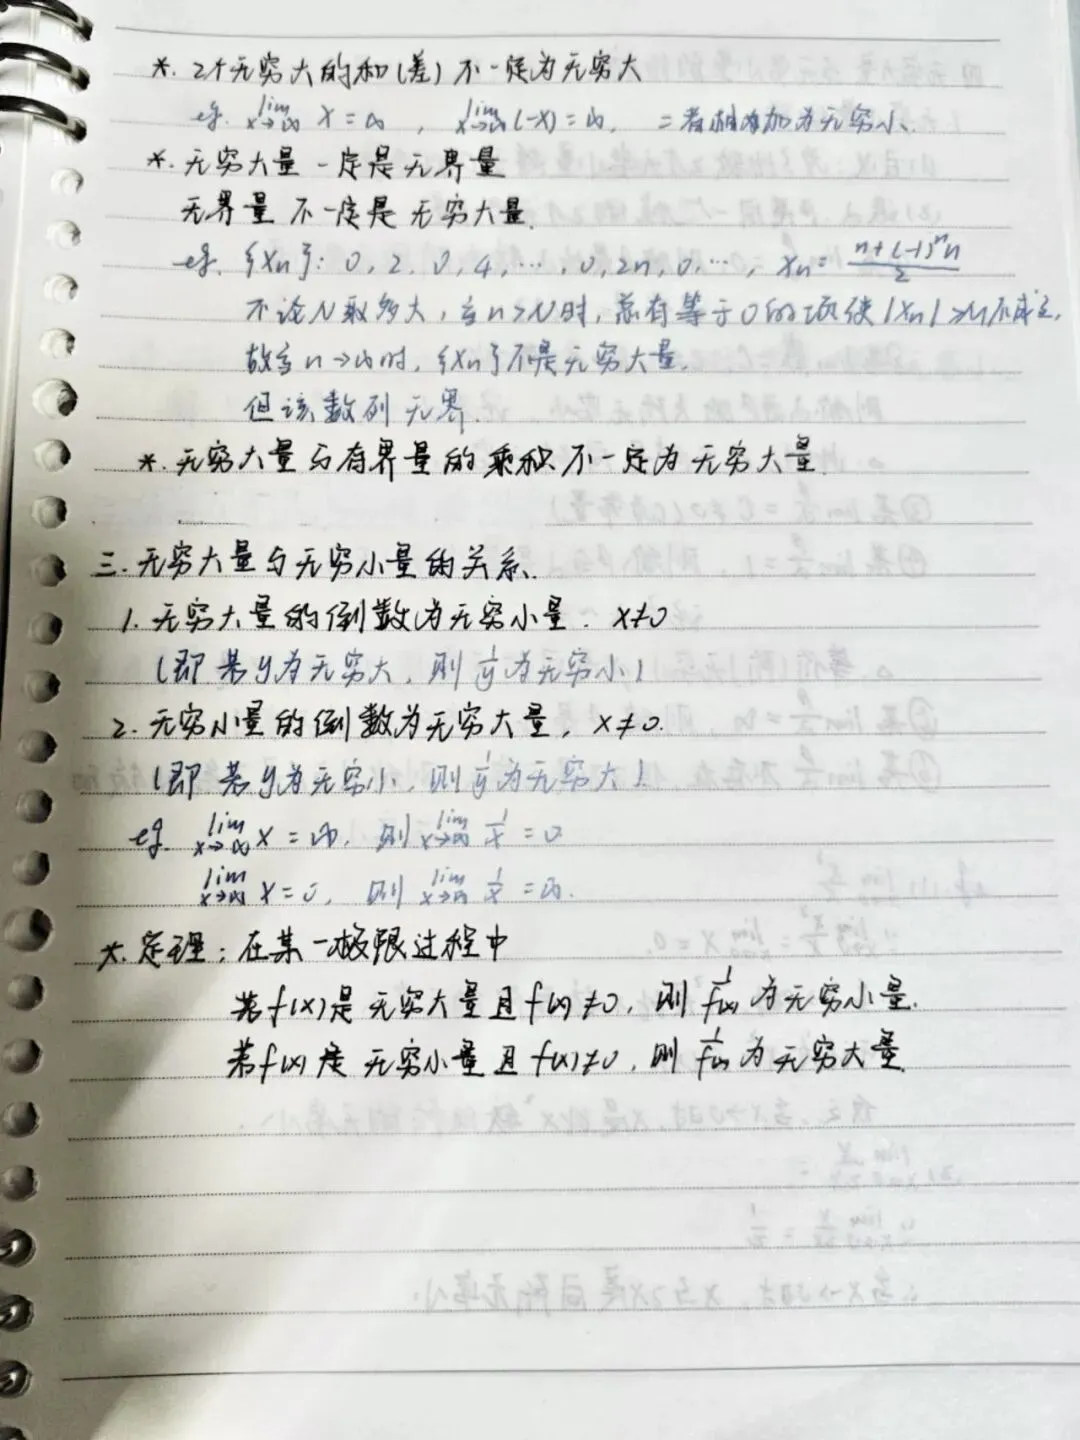 *. 2个无穷大的和(差)不一定为无穷大
eg. lim x→∞ x = ∞, lim x→∞ (-x) = ∞, 二者相加为无穷小.
*. 无穷大量一定是无界量
无界量不一定是无穷大量.
eg. {xn}: 0, 2, 0, 4, …, 0, 2n, 0, …, xn = (n+(-1)^n n)/2
不论N取多大, 当n>N时, 总有等于0的项使|xn|>M不成立,
故当n→∞时, {xn}不是无穷大量.
但该数列无界.
*. 无穷大量与有界量的乘积不一定为无穷大量.
三. 无穷大量与无穷小量的关系.
1. 无穷大量的倒数为无穷小量. x≠0
(即若y为无穷大, 则1/y为无穷小)
2. 无穷小量的倒数为无穷大量, x≠0.
(即若y为无穷小, 则1/y为无穷大)
eg. lim x→∞ x = ∞, 则 lim x→∞ 1/x = 0
lim x→∞ x = 0, 则 lim x→∞ 1/x = ∞.
*. 定理: 在某一极限过程中
若f(x)是无穷大量且f(x)≠0, 则1/f(x)为无穷小量.
若f(x)是无穷小量且f(x)≠0, 则1/f(x)为无穷大量.